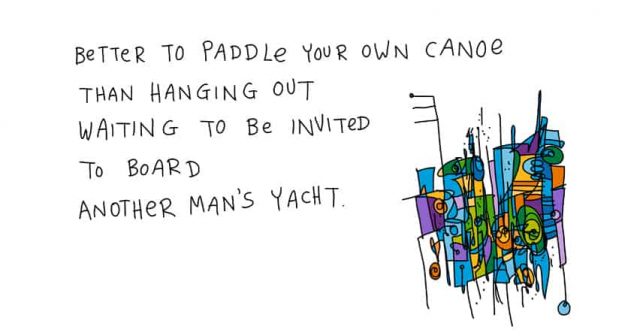 BeTTeR TO PADDLe YOUR OWN CANOe
THAN HANGING OUT
WAITING TO Be INVITeD
To BOARD
ANOTHeR MAN'S YACHT.